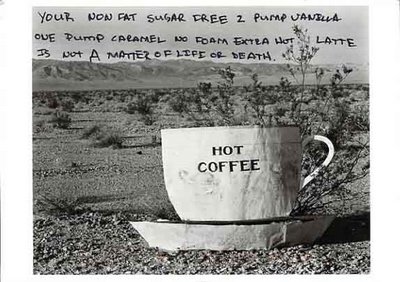 YOUR NON FAT SUGAR FREE 2 PUMP VANILLA
ONE PUMP CARAMEL NO FOAM EXTRA HOT LATTE
IS NOT A MATTER OF LIFE OR DEATH.
HOT
COFFEE